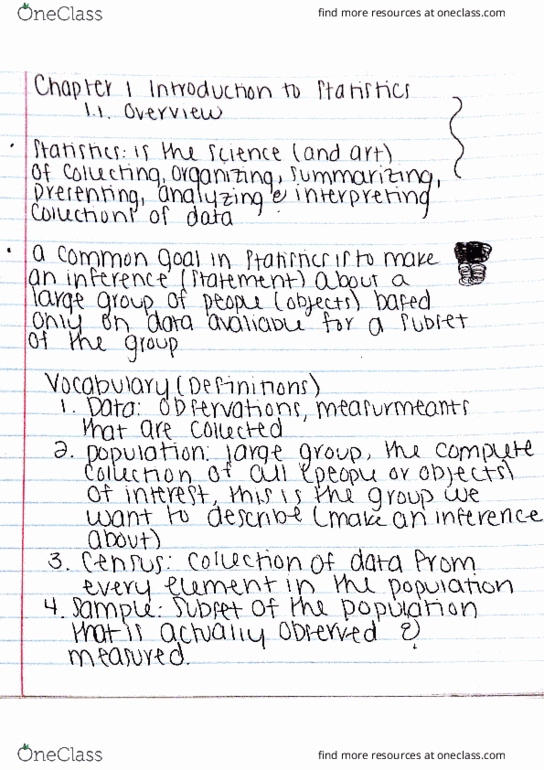 OneClass
find more resources at oneclass.com
Chapter 1 Introduction to Statistics
1.1. Overview
Statistics: is the science (and art)
of collecting, organizing, summarizing,
presenting, analyzing & interpreting
collections of data
a common goal in statistics is to make
an inference (statement) about a
large group of people (objects) based
only on data avaliable for a subset
of the group
Vocabulary (Definitions)
1. Data: observations, measurmeants
that are collected
2. population: large group, the complete
collection of all (people or objects)
of interest, this is the group we
want to describe (make an inference
about)
3. Census: collection of data from
every element in the population
4. Sample: subset of the population
that is actually observed &
measured.
OneClass
find more resources at oneclass.com